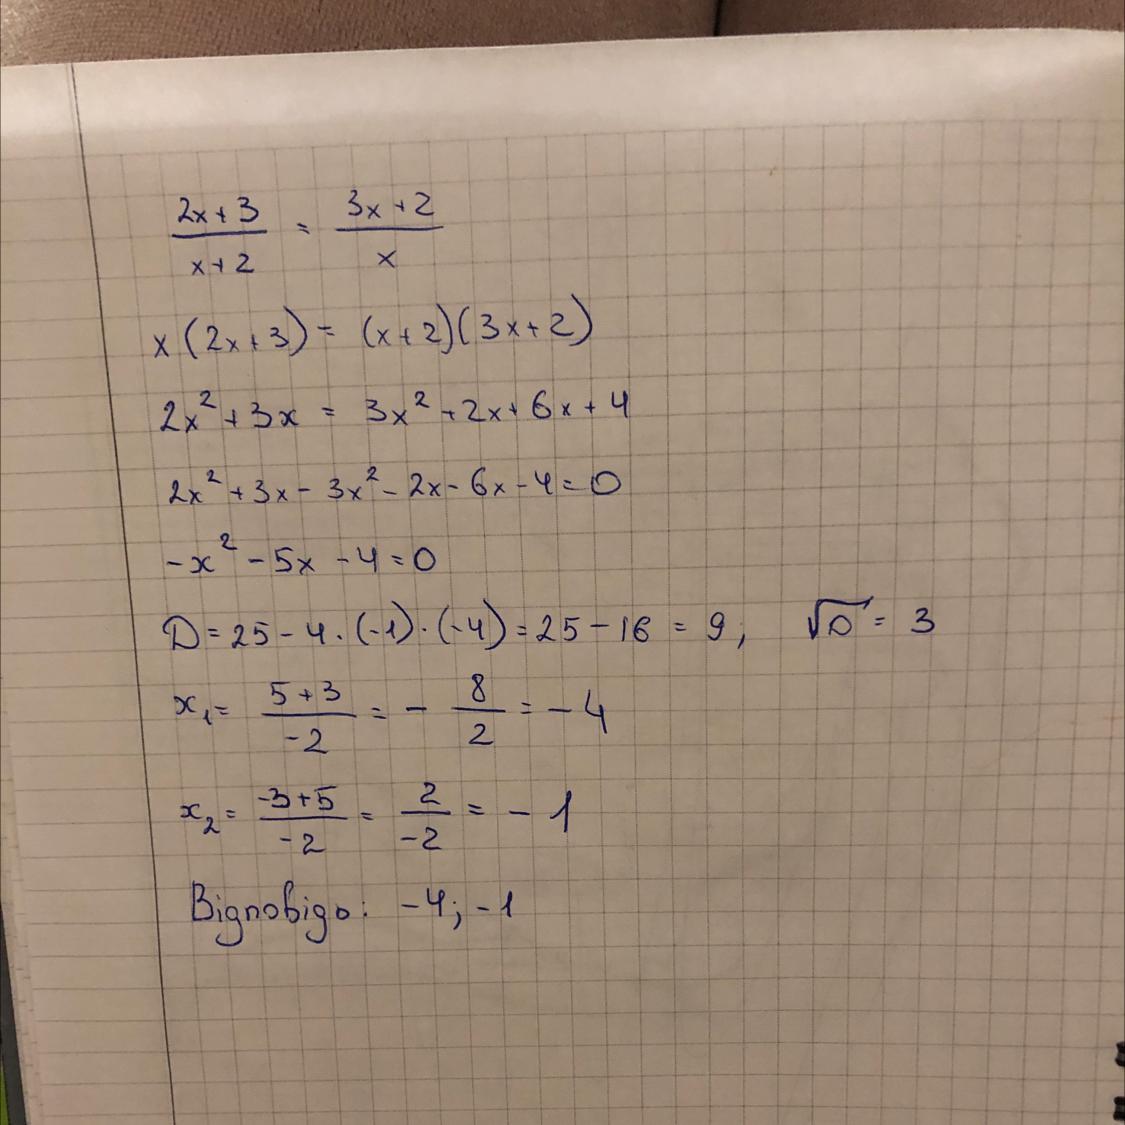 (2x+3)/(x+2) = (3x+2)/x
x(2x+3) = (x+2)(3x+2)
2x² + 3x = 3x² + 2x + 6x + 4
2x² + 3x - 3x² - 2x - 6x - 4 = 0
-x² - 5x - 4 = 0
D = 25 - 4 · (-1) · (-4) = 25 - 16 = 9; √D = 3
x₁ = (5+3)/(-2) = - 8/2 = - 4
x₂ = (-3+5)/(-2) = 2/(-2) = - 1
Відповідь: -4; -1